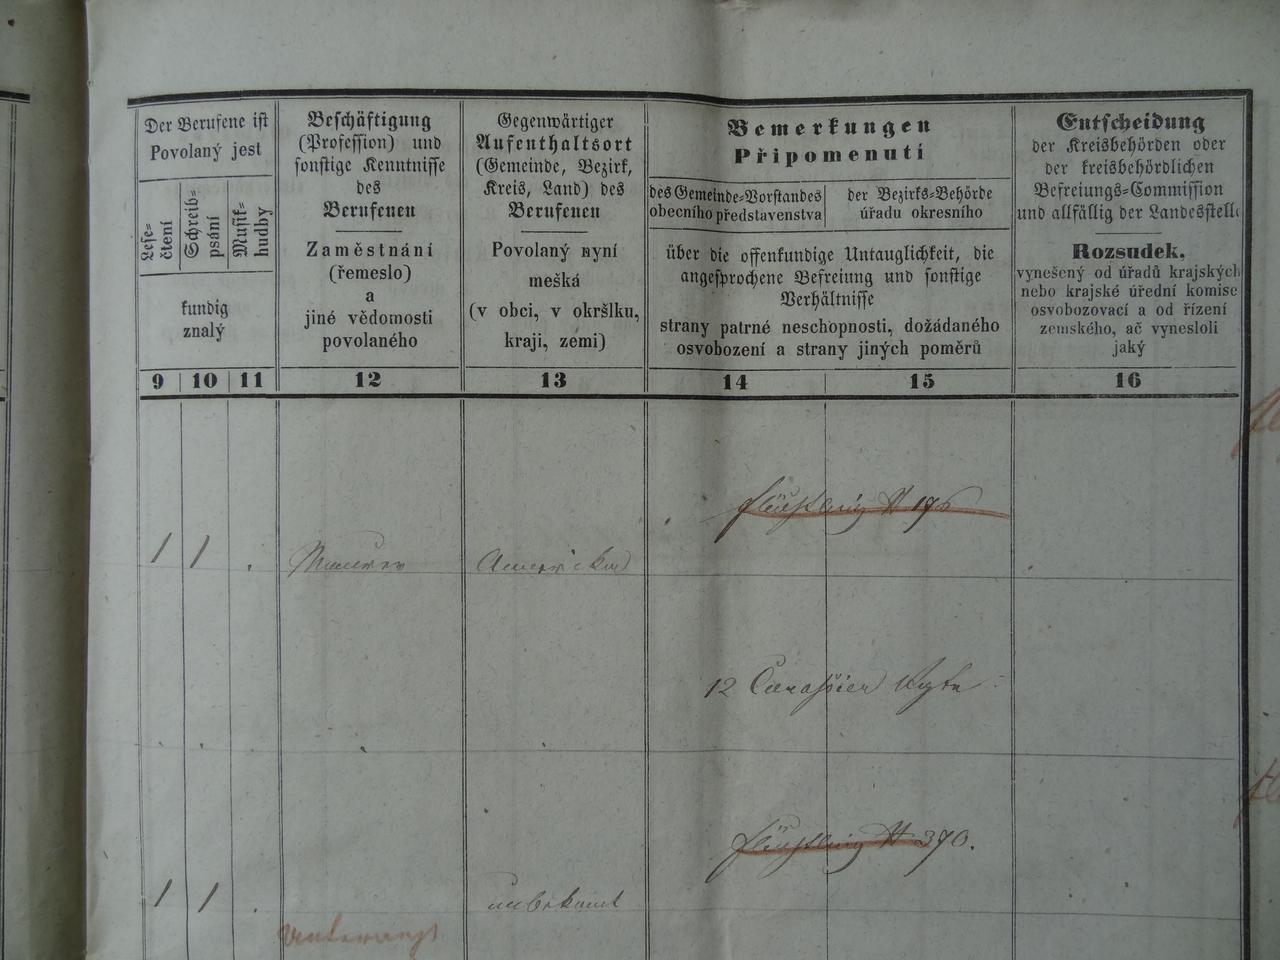 Der Berufene ist
Povolaný jest
Lese=
čtení
Schreib=
psání
Musik=
hudby
kundig
znalý
Beschäftigung
(Profession) und
sonstige Kenntnisse
des
Berufenen
Zaměstnání
(řemeslo)
a
jiné vědomosti
povolaného
Gegenwärtiger
Aufenthaltsort
(Gemeinde, Bezirk,
Kreis, Land) des
Berufenen
Povolaný nyní
mešká
(v obci, v okršlku,
kraji, zemi)
Bemerkungen
Připomenutí
des Gemeinde=Vorstandes
obecního představenstva
der Bezirks=Behörde
úřadu okresního
über die offenkundige Untauglichkeit, die
angesprochene Befreiung und sonstige
Verhältnisse
strany patrné neschopnosti, dožádaného
osvobození a strany jiných poměrů
Entscheidung
der Kreisbehörden oder
der kreisbehördlichen
Befreiungs=Commission
und allfällig der Landesstelle
Rozsudek,
vynešený od úřadů krajských
nebo krajské úřední komise
osvobozovací a od řízení
zemského, ač vynesloli
jaký
9 10 11 12 13 14 15 16
Flüchtling # 196
1 1 . Maurer Amerika
12 Curassier Regte
Flüchtling # 390.
1 1 . unbekannt